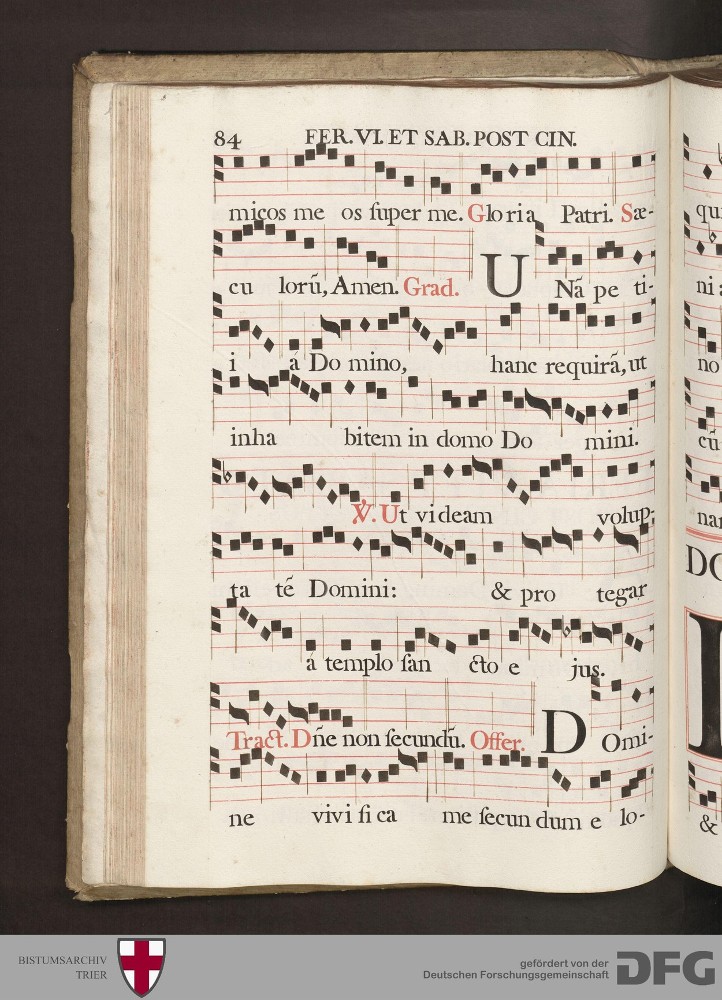 84 FER. VI. ET SAB. POST CIN.
micos me os ſuper me. Gloria Patri. Sæ-
cu lorũ, Amen. Grad. UNã pe ti-
i á Do mino, hanc requirã, ut
inha bitem in domo Do mini.
℣. Ut videam volup-
ta tẽ Domini: & pro tegar
á templo ſan cto e jus.
Tract. Dñe non ſecundũ. Offer. DOmi-
ne vivi fi ca me ſecun dum e lo-
qui
ni a
no
cũ
nar
DO
&
BISTUMSARCHIV
TRIER
gefördert von der
Deutschen Forschungsgemeinschaft
DFG